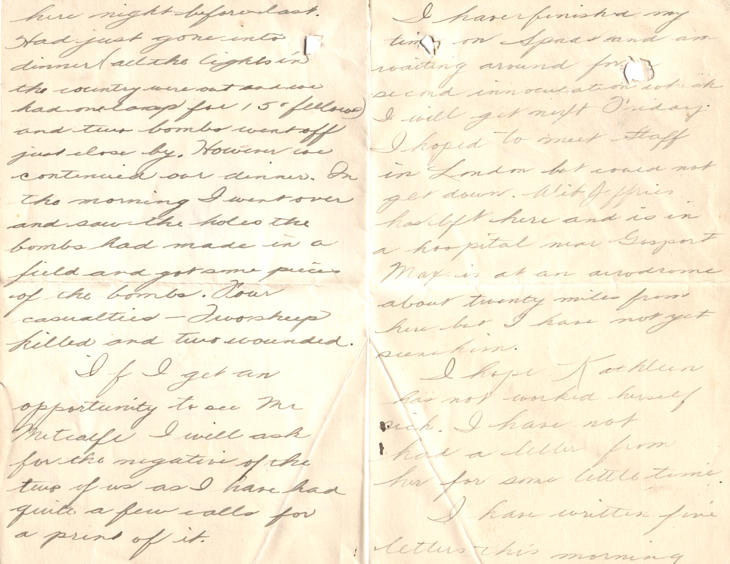 here night before last.
Had just gone into
dinner (all the lights in
the country were out and we
had one lamp for 150 fellows)
and two bombs went off
just close by. However we
continued our dinner. In
the morning I went over
and saw the holes the
bombs had made in a
field and got some pieces
of the bombs. Four
casualties – Two sheep
killed and two wounded.
If I get an
opportunity to see Mr
Metcalfe I will ask
for the negative of the
two of us as I have had
quite a few calls for
a print of it.
I have finished my
time on Spads and am
waiting around for
second innoculation which
I will get next Friday.
I hoped to meet Staff
in London but could not
get down. Jeffries
has left here and is in
a hospital near Gosport
Max is at an aerodrome
about twenty miles from
here but I have not yet
seen him.
I hope Kathleen
has not worked herself
sick. I have not
had a letter from
her for some little time.
I have written five
letters this morning